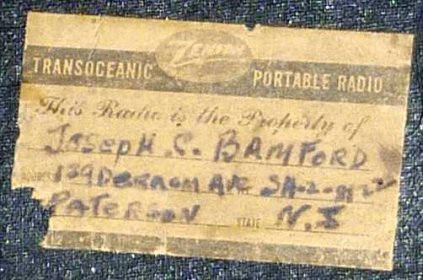 ZENITH
TRANSOCEANIC PORTABLE RADIO
This Radio is the Property of
JOSEPH C. BAMFORD
ADDRESS AVE SH-2-
PATERSON STATE N.J